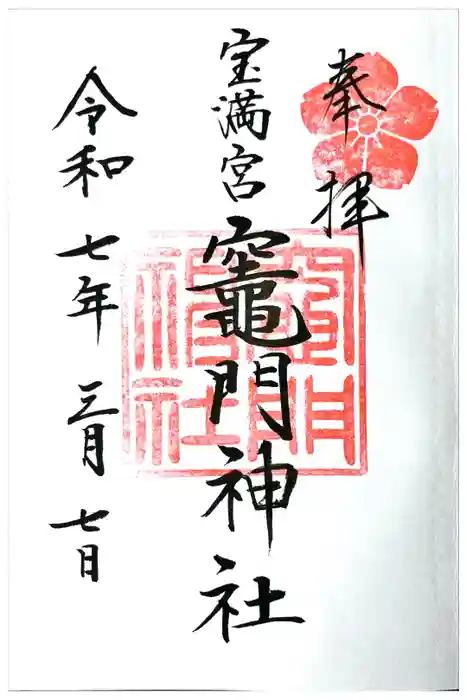 奉拝
宝満宮
竈門神社
令和七年三月七日
竈門神社